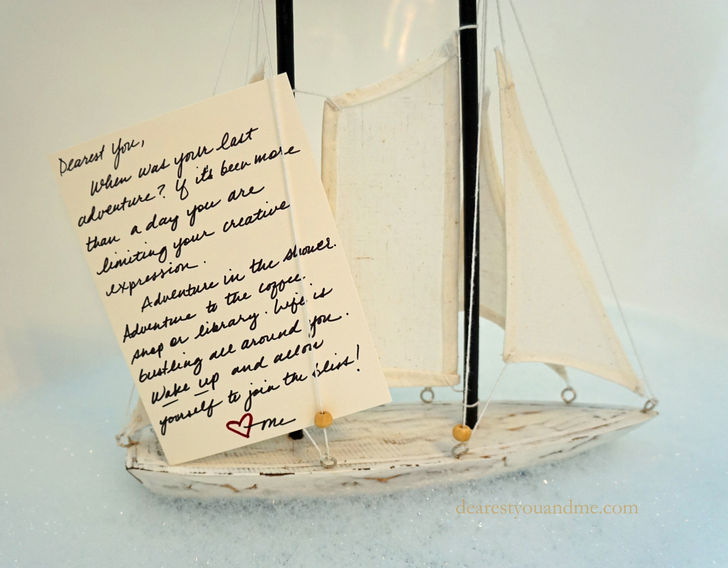 Dearest You,
When was your last
adventure? If it's been more
than a day you are
limiting your creative
expression.
Adventure in the shower.
Adventure to the coffee.
shop or library. Life is
bustling all around you.
Wake up and allow
yourself to join the bliss!
me
dearestyouandme.com